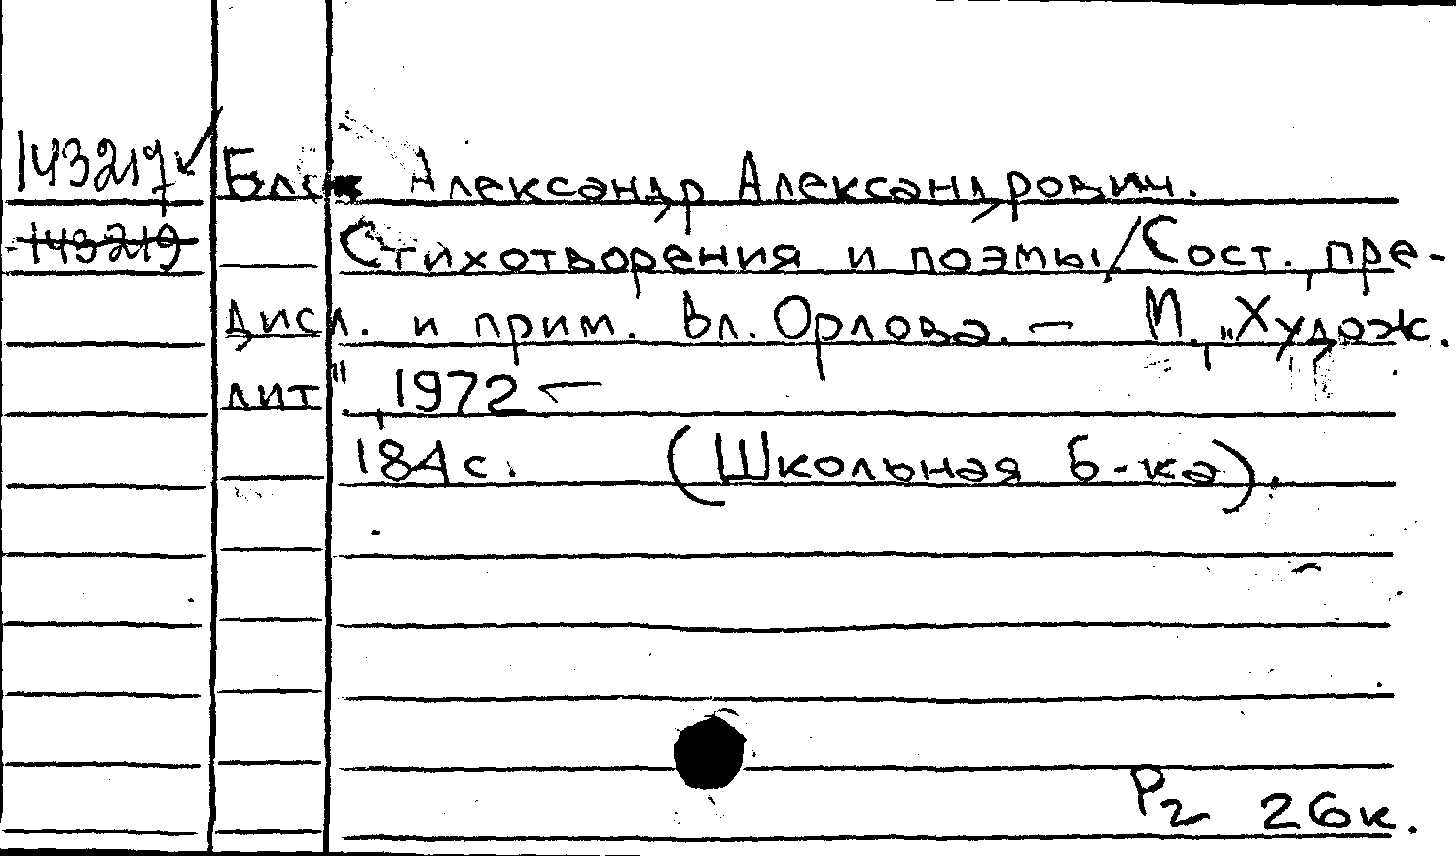 143217✓ Блок Александр Александрович.
143219 Стихотворения и поэмы/Сост., пре-
дисл. и прим. Вл. Орлова. — М., „Худож.
лит", 1972 —
184 с. (Школьная б-ка).
Р2 26к.